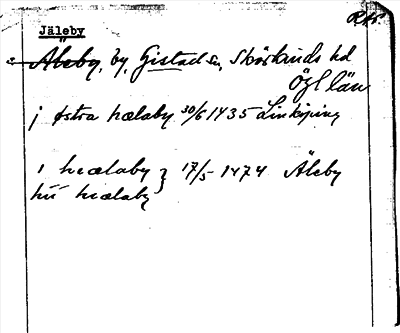 RAP.
Jäleby
Äleby, by, Gistad sn, Skärkinds hd
Ögl län
j østra hælaby 30/6 1435 Linköping
i hiælaby } 17/5 1474 Äleby
hii hiælaby